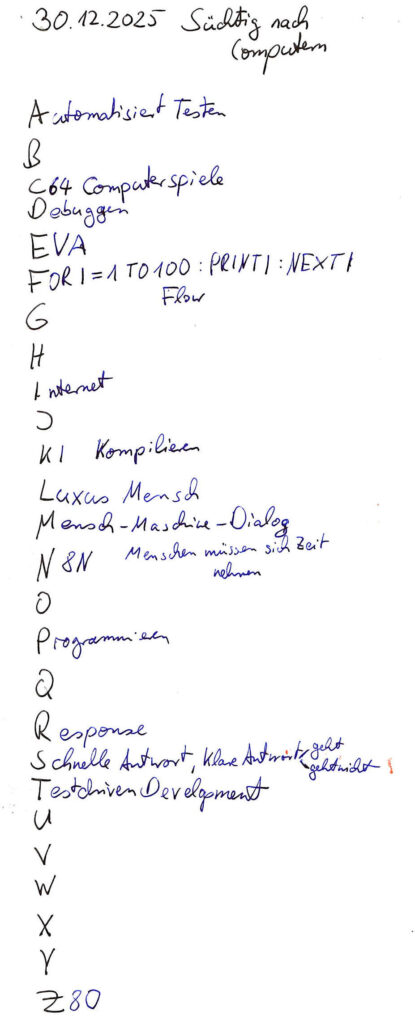 30.12.2025 Süchtig nach
Computern
Automatisiert Testen
B
C64 Computerspiele
Debuggen
EVA
FOR I=1 TO 100 : PRINT I : NEXT I
Flow
G
H
Internet
J
KI Kompilieren
Luxus Mensch
Mensch-Maschine-Dialog
N8N Menschen müssen sich Zeit
nehmen
O
Programmieren
Q
Response
Schnelle Antwort, Klare Antwort geht
geht nicht !
Testdriven Development
U
V
W
X
Y
Z80